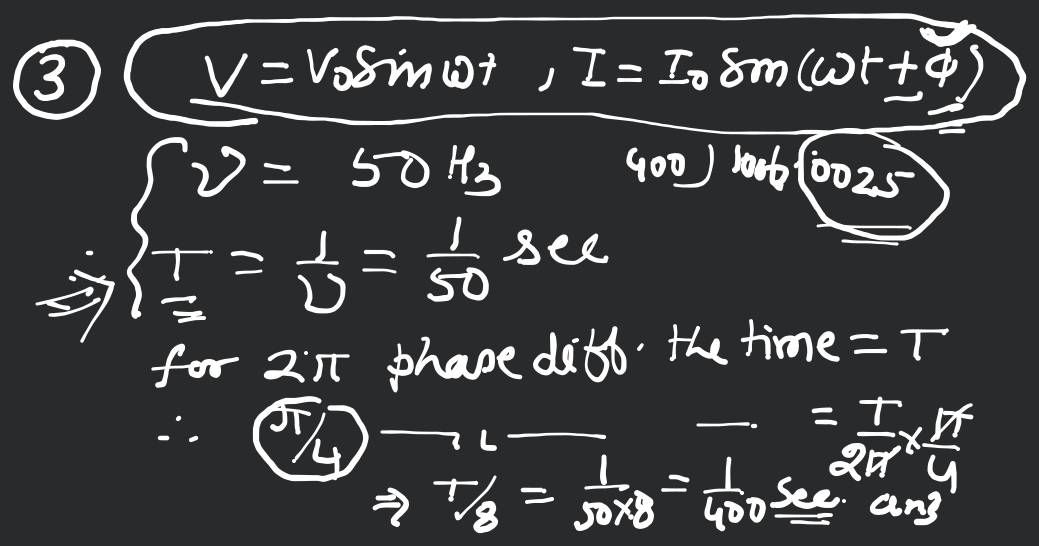 ③ V = V₀ Sin ωt , I = I₀ Sin (ωt + φ)
ν = 50 Hz 400 ) 1000 ( .0025
∴ T = 1/ν = 1/50 sec
for 2π phase diff. the time = T
∴ π/4 —— 〃 —— —. = T/2π × π/4
⇒ T/8 = 1/50×8 = 1/400 sec. ans